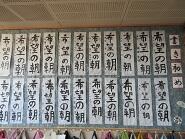 書き初め
希望の朝
希望の朝
希望の朝
希望の朝
希望の朝
希望の朝
希望の朝
希望の朝
希望の朝
希望の朝
希望の朝
希望の朝
希望の朝
希望の朝
希望の朝
希望の朝
希望の朝
希望の朝